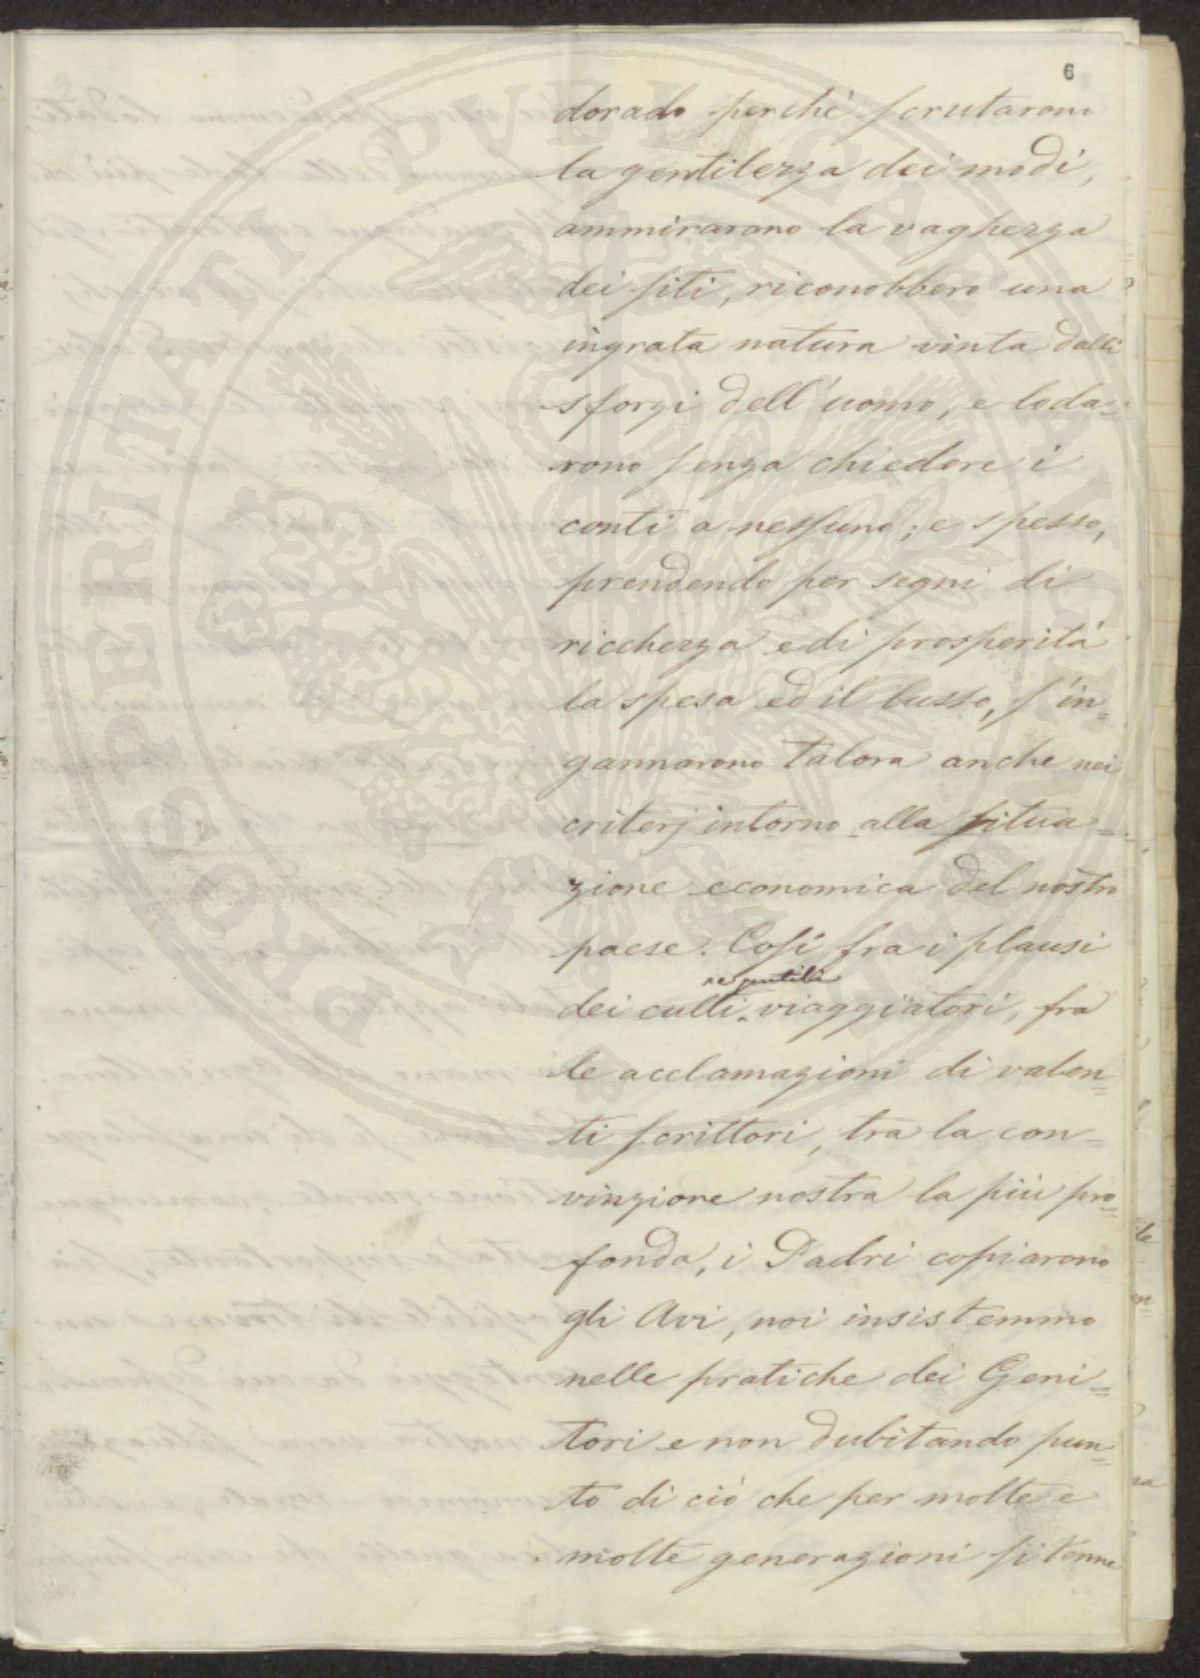 6
dorado perchè scrutarono
la gentilezza dei modi,
ammirarono la vaghezza
dei siti, riconobbero una
ingrata natura vinta dalli
sforzi dell'uomo, e loda=
rono senza chiedere i
conti a nessuno; e spesso,
prendendo per segni di
ricchezza e di prosperità
la spesa ed il lusso, s'in=
gannarono talora anche nei
criterj intorno alla situa=
zione economica del nostro
paese. Così fra i plausi
e gentili
dei culti viaggiatori, fra
le acclamazioni di valen=
ti scrittori, tra la con=
vinzione nostra la più pro=
fonda, i Padri copiarono
gli Avi, noi insistemmo
nelle pratiche dei Geni=
tori e non dubitando pun=
to di ciò che per molte e
molte generazioni si tenne
PROSPERITATI PVBLICAE AVGENDAE